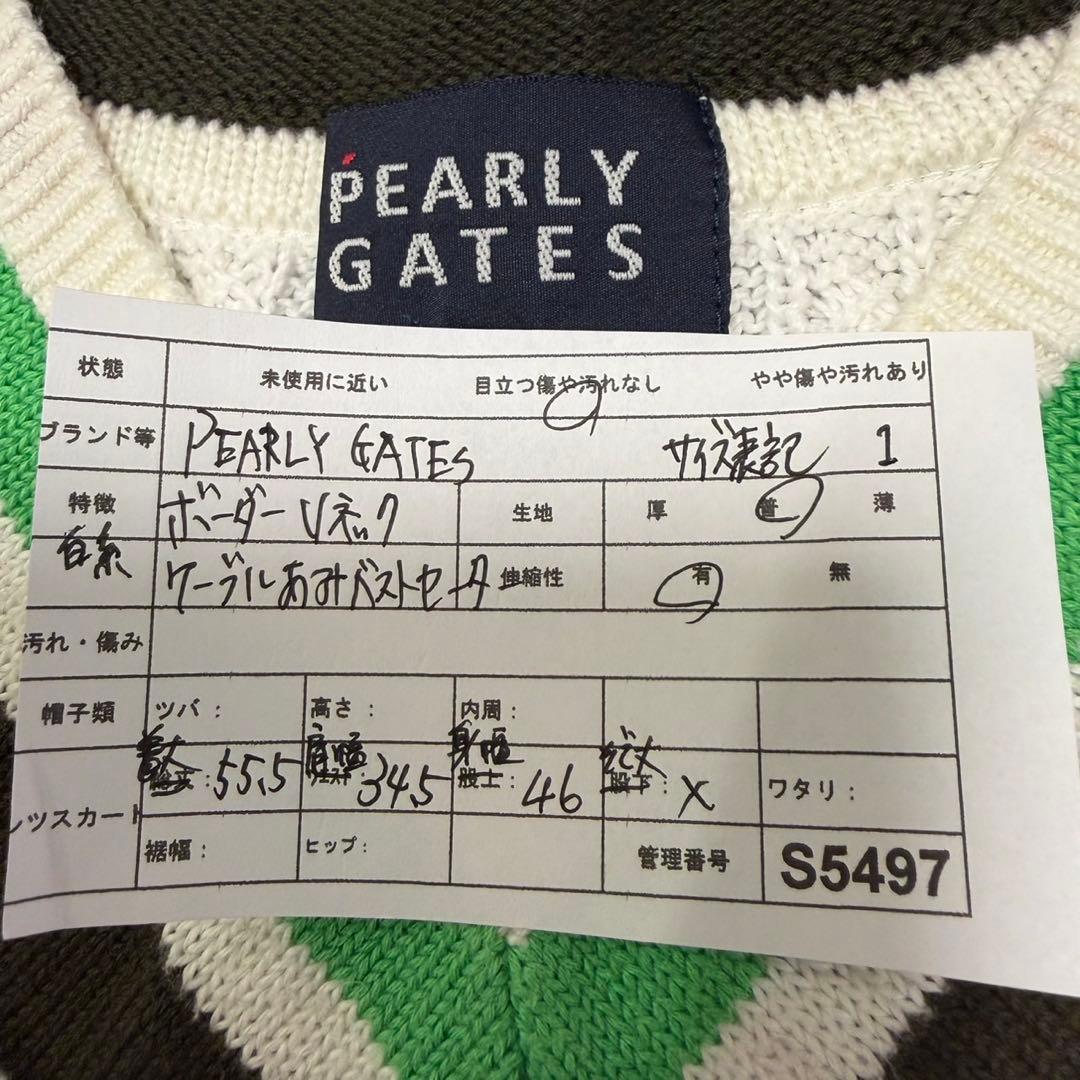 PEARLY
GATES
状態 未使用に近い 目立つ傷や汚れなし やや傷や汚れあり
ブランド等 PEARLY GATES サイズ表記 1
特徴 ボーダー Vネック 生地 厚 普 薄
白系 ケーブルあみベストセータ 伸縮性 有 無
汚れ・傷み
帽子類 ツバ： 高さ： 内周：
着丈 肩幅 身幅 そで丈
ツスカート ：55.5 ：34.5 ：46 ：X ワタリ：
裾幅： ヒップ： 管理番号 S5497